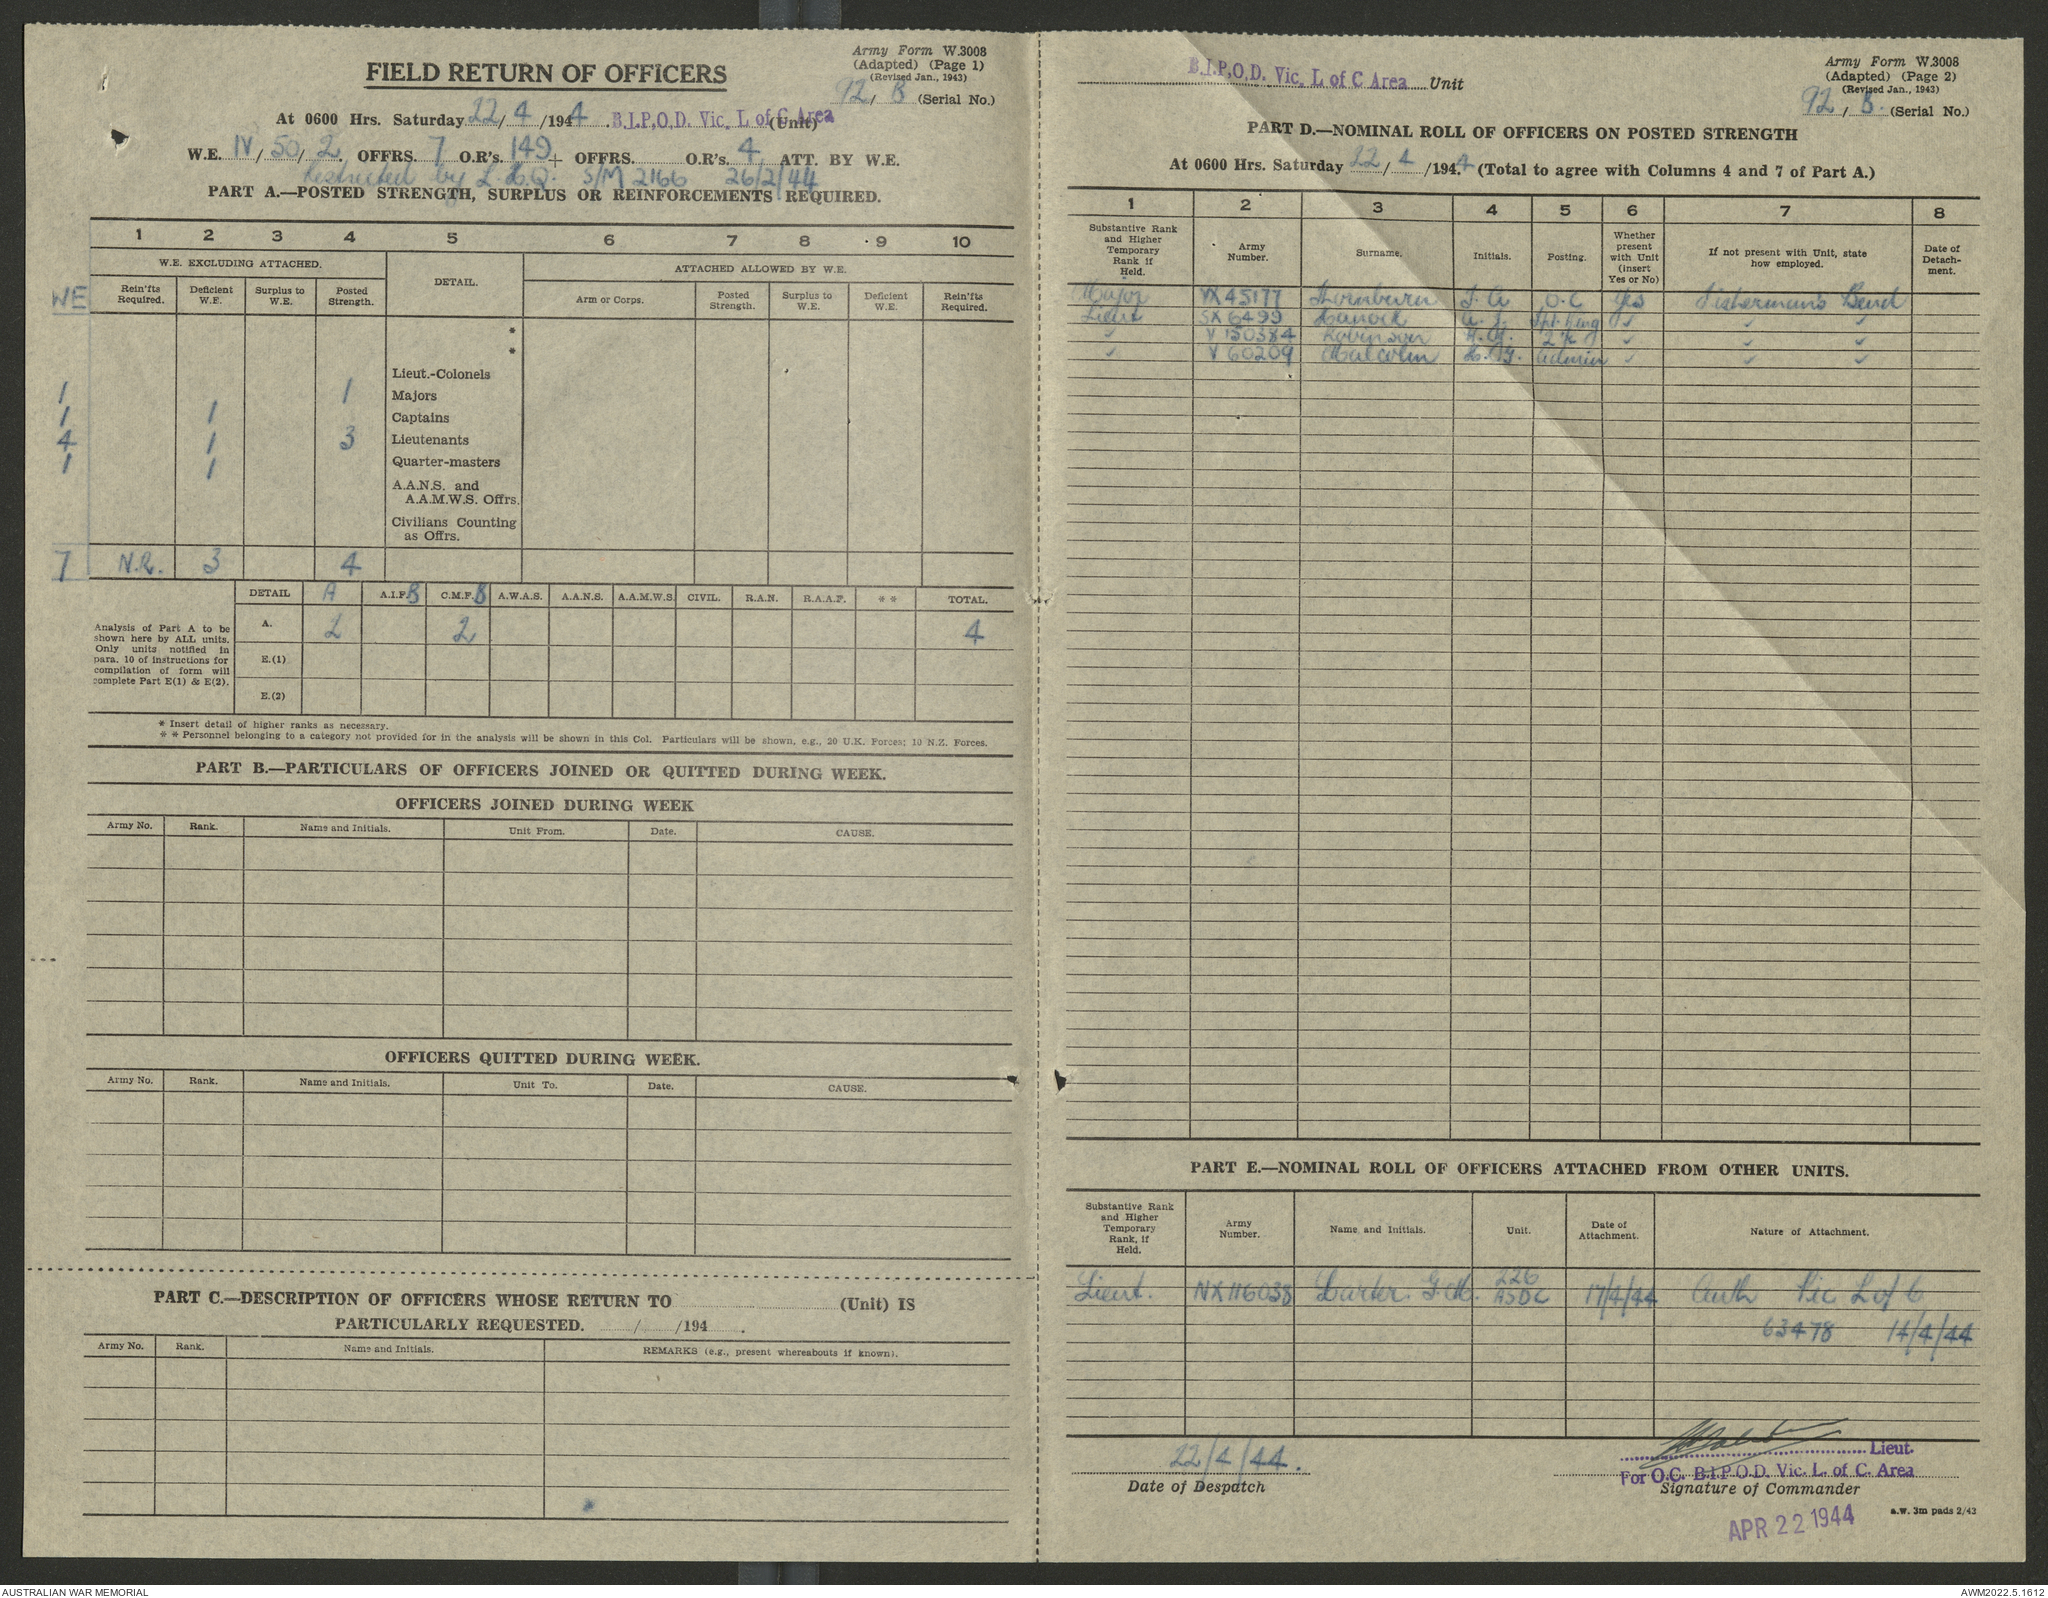 Army Form W.3008
(Adapted) (Page 1)
(Revised Jan., 1943)
FIELD RETURN OF OFFICERS
92/B (Serial No.)
At 0600 Hrs. Saturday 22/4/1944 B.I.P.O.D. Vic. L of C Area (Unit)
W.E. IV/50/2 OFFRS. 7 O.R's. 149 + OFFRS. O.R's. 4 ATT. BY W.E.
Restricted by L.H.Q. S/M 2166 26/2/44
PART A.—POSTED STRENGTH, SURPLUS OR REINFORCEMENTS REQUIRED.
1 2 3 4 5 6 7 8 9 10
W.E. EXCLUDING ATTACHED.
DETAIL.
ATTACHED ALLOWED BY W.E.
WE
Rein'fts Required.
Deficient W.E.
Surplus to W.E.
Posted Strength.
Arm or Corps.
Posted Strength.
Surplus to W.E.
Deficient W.E.
Rein'fts Required.
*
*
Lieut.-Colonels
1 1 Majors
1 1 Captains
4 1 3 Lieutenants
1 1 Quarter-masters
A.A.N.S. and
A.A.M.W.S. Offrs.
Civilians Counting
as Offrs.
7 N.R. 3 4
DETAIL A A.I.F. B C.M.F. B A.W.A.S. A.A.N.S. A.A.M.W.S. CIVIL. R.A.N. R.A.A.F. ** TOTAL.
Analysis of Part A to be
shown here by ALL units.
Only units notified in
para. 10 of instructions for
compilation of form will
complete Part E(1) & E(2).
A. 2 2 4
E.(1)
E.(2)
* Insert detail of higher ranks as necessary.
** Personnel belonging to a category not provided for in the analysis will be shown in this Col. Particulars will be shown, e.g., 20 U.K. Forces; 10 N.Z. Forces.
PART B.—PARTICULARS OF OFFICERS JOINED OR QUITTED DURING WEEK.
OFFICERS JOINED DURING WEEK
Army No. Rank. Name and Initials. Unit From. Date. CAUSE.
OFFICERS QUITTED DURING WEEK.
Army No. Rank. Name and Initials. Unit To. Date. CAUSE.
PART C.—DESCRIPTION OF OFFICERS WHOSE RETURN TO (Unit) IS
PARTICULARLY REQUESTED. / /194 .
Army No. Rank. Name and Initials. REMARKS (e.g., present whereabouts if known).
Army Form W.3008
(Adapted) (Page 2)
(Revised Jan., 1943)
B.I.P.O.D. Vic. L of C Area Unit
92/B. (Serial No.)
PART D.—NOMINAL ROLL OF OFFICERS ON POSTED STRENGTH
At 0600 Hrs. Saturday 22/4/1944 (Total to agree with Columns 4 and 7 of Part A.)
1 2 3 4 5 6 7 8
Substantive Rank and Higher Temporary Rank if Held.
Army Number.
Surname.
Initials.
Posting.
Whether present with Unit (insert Yes or No)
If not present with Unit, state how employed.
Date of Detachment.
Major VX45177 Thornburn O.C Yes Fisherman's Bend
Lieut SX6499
V150384 Robinson
V60209 Malcolm
PART E.—NOMINAL ROLL OF OFFICERS ATTACHED FROM OTHER UNITS.
Substantive Rank and Higher Temporary Rank, if Held.
Army Number.
Name and Initials.
Unit.
Date of Attachment.
Nature of Attachment.
Lieut. NX116038 226 17/4/44 Auth Vic L of C
63478 14/4/44
22/4/44.
Date of Despatch
Lieut.
For O.C. B.I.P.O.D. Vic. L. of C. Area
Signature of Commander
APR 22 1944
a.w. 3m pads 2/43
AUSTRALIAN WAR MEMORIAL
AWM2022.5.1612